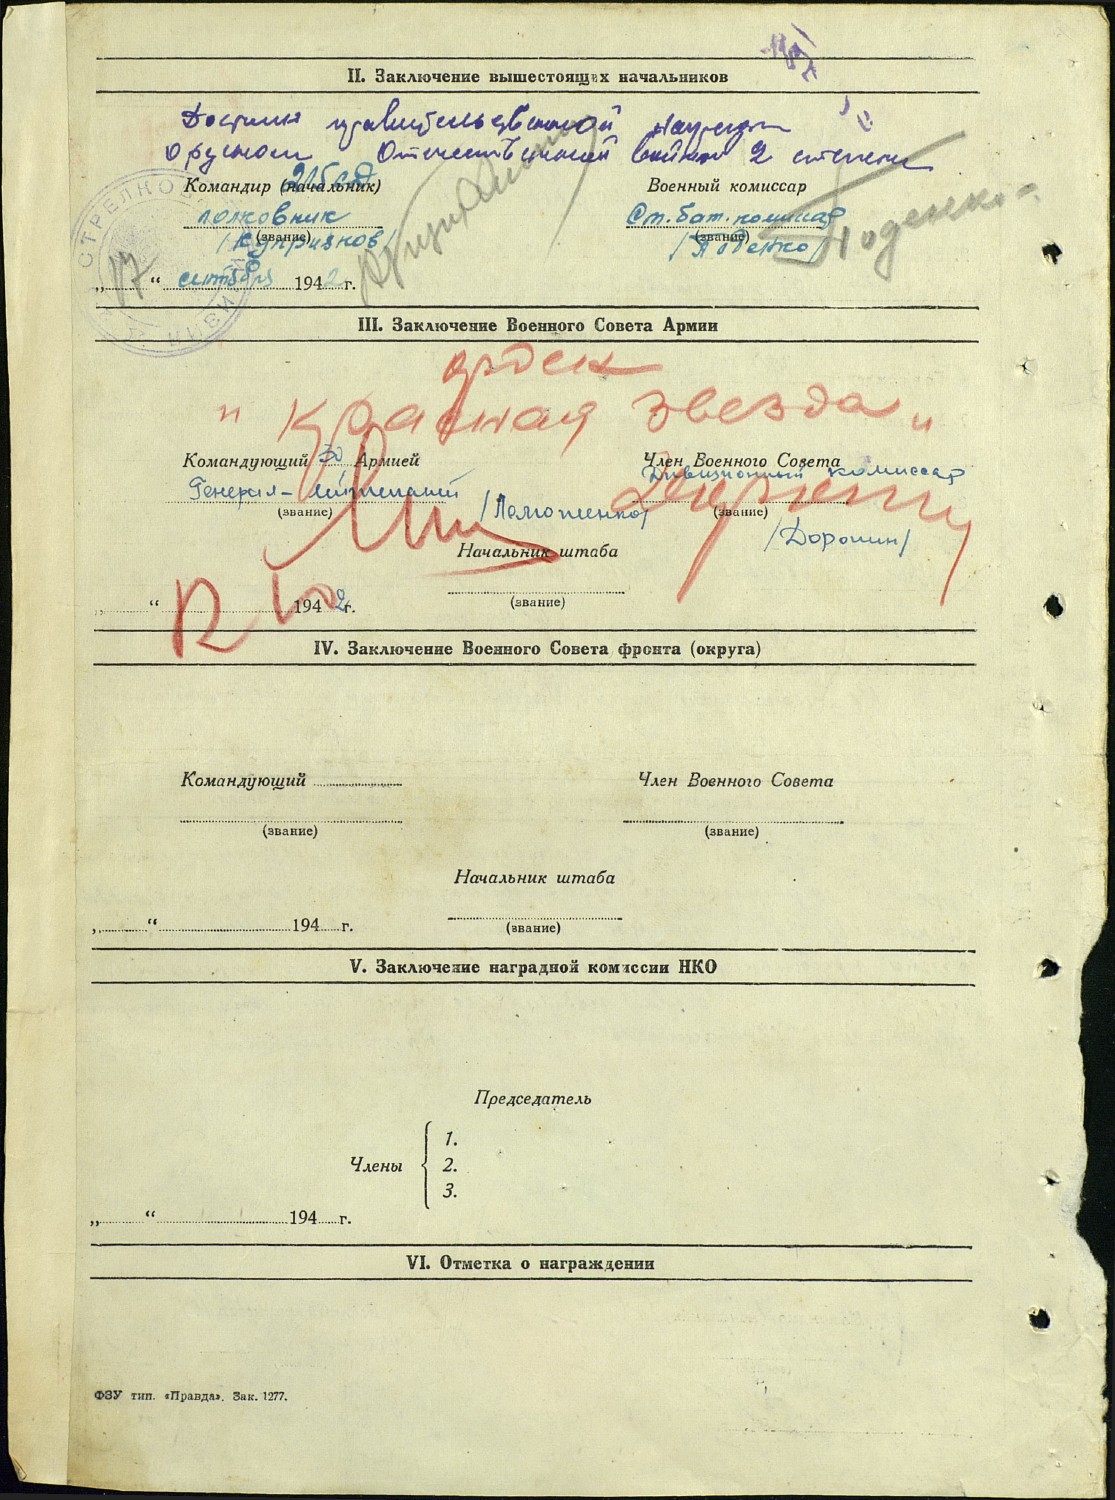 II. Заключение вышестоящих начальников
Достоин правительственной награды
Орденом Отечественной войны 2 степени
Командир (начальник) 215 сд
Военный комиссар
полковник
Ст. бат. комиссар
(звание)
(звание)
/Куприянов/
/Поденко/
СТРЕЛКОВ
„17“ сентября 1942 г.
III. Заключение Военного Совета Армии
орден
"Красная звезда"
Командующий 30 Армией
Член Военного Совета
Генерал-лейтенант
Дивизионный комиссар
(звание)
/Лелюшенко/
(звание)
/Доронин/
Начальник штаба
(звание)
„ “ 1942 г.
IV. Заключение Военного Совета фронта (округа)
Командующий
Член Военного Совета
(звание)
(звание)
Начальник штаба
(звание)
„ “ 194 г.
V. Заключение наградной комиссии НКО
Председатель
Члены
1.
2.
3.
„ “ 194 г.
VI. Отметка о награждении
ФЗУ тип. «Правда». Зак. 1277.